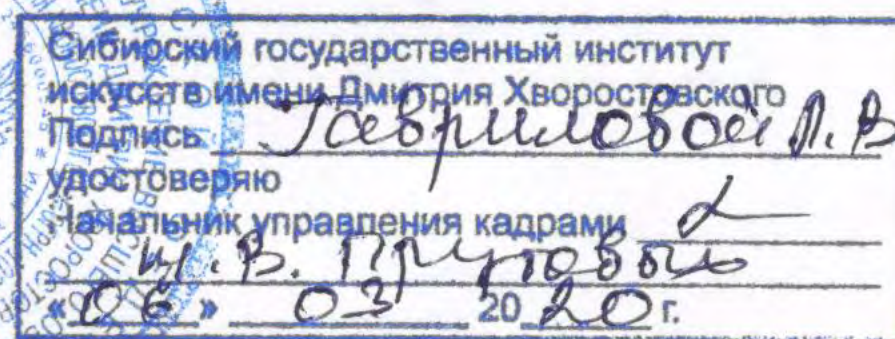 Сибирский государственный институт
искусств имени Дмитрия Хворостовского
Подпись Гавриловой Л.В
удостоверяю
Начальник управления кадрами
«06» 03 2020 г.